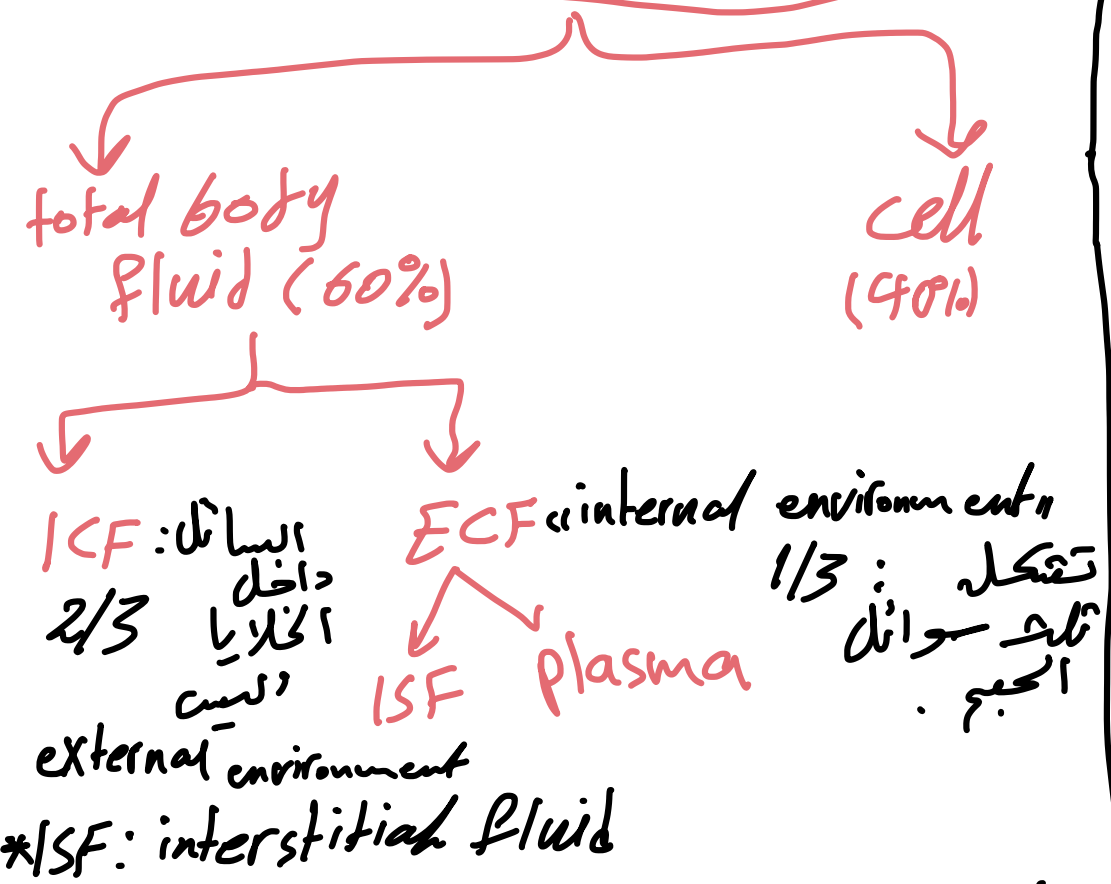 total body
fluid (60%)
cell
(40%)
ICF: السائل
داخل
الخلايا
2/3
وليست
external environment
ECF "internal environment"
1/3 : تشكل
ثلث سوائل
الجسم .
ISF
plasma
*ISF: interstitial fluid